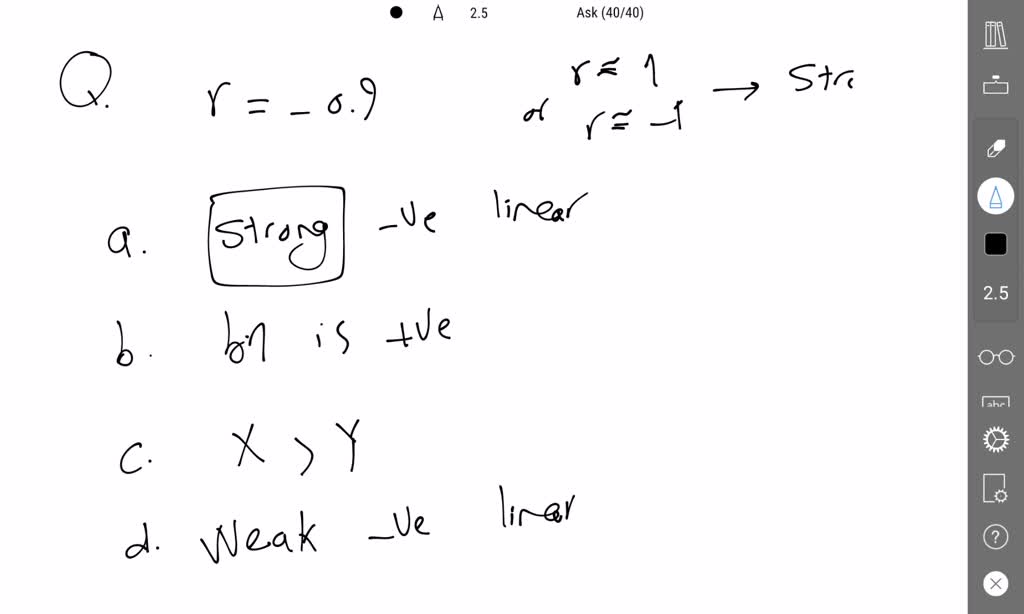 2.5 Ask (40/40)
Q. r = - 0.9
r ≈ 1
or r ≅ -1 → Stro
a. Strong -ve linear
b. is +ve
c. X > Y
d. Weak -ve linear
2.5
abc
?